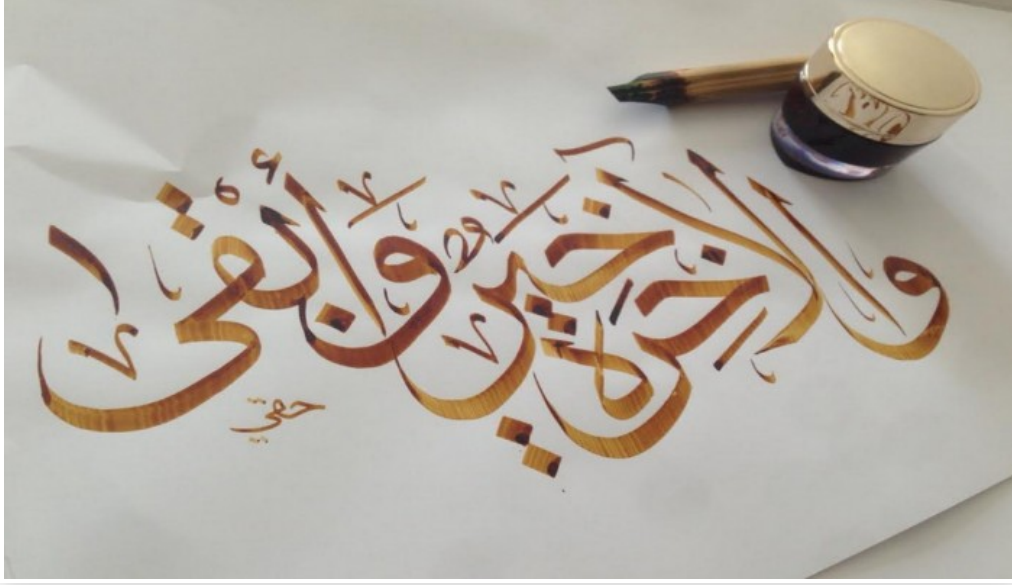 والآخرة خير وأبقى
حقي